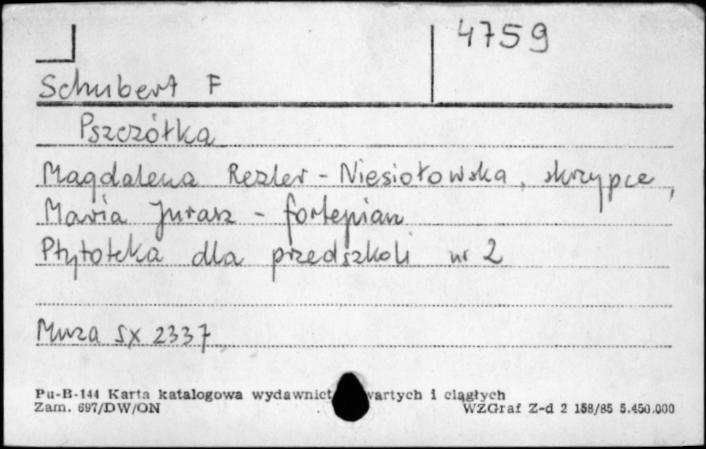 4759
Schubert F
Pszczółka
Magdalena Rezler-Niesiołowska, skrzypce,
Maria Jurasz - fortepian
Płytoteka dla przedszkoli nr 2
Muza SX 2337
Pu-B-144 Karta katalogowa wydawnict wartych i ciągłych
Zam. 697/DW/ON WZGraf Z-d 2 158/85 5.450.000